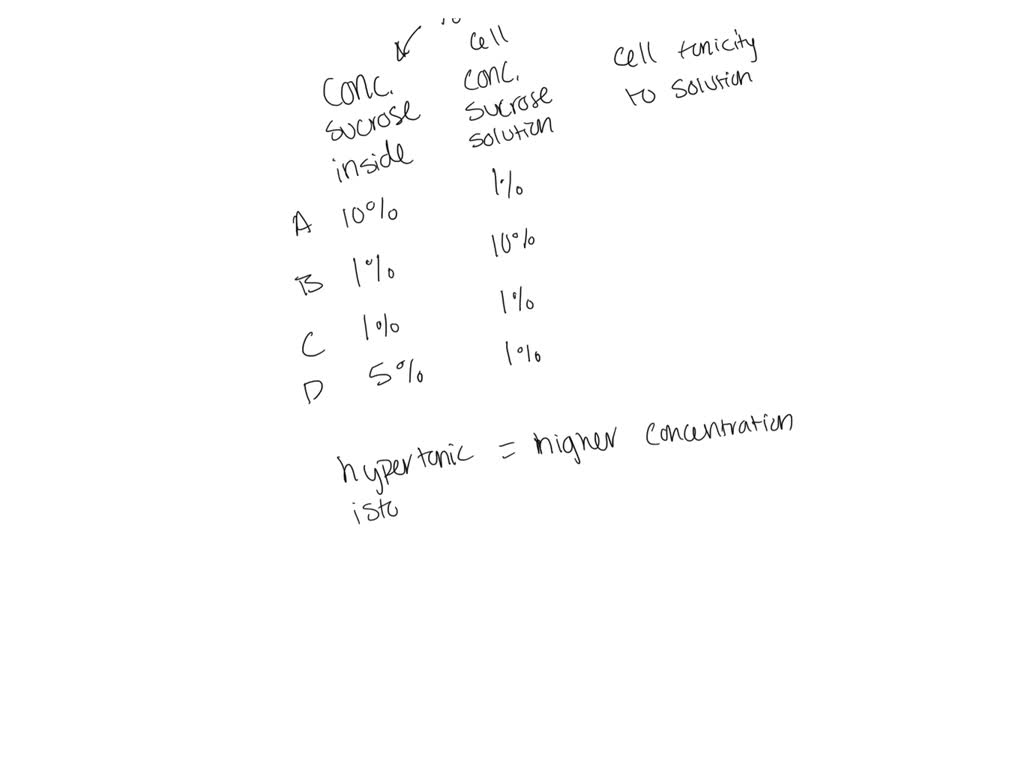 cell
conc. conc. cell tonicity
sucrose sucrose to solution
inside solution
A 10% 1%
B 1% 10%
C 1% 1%
D 5% 1%
hypertonic = higher concentration
isto